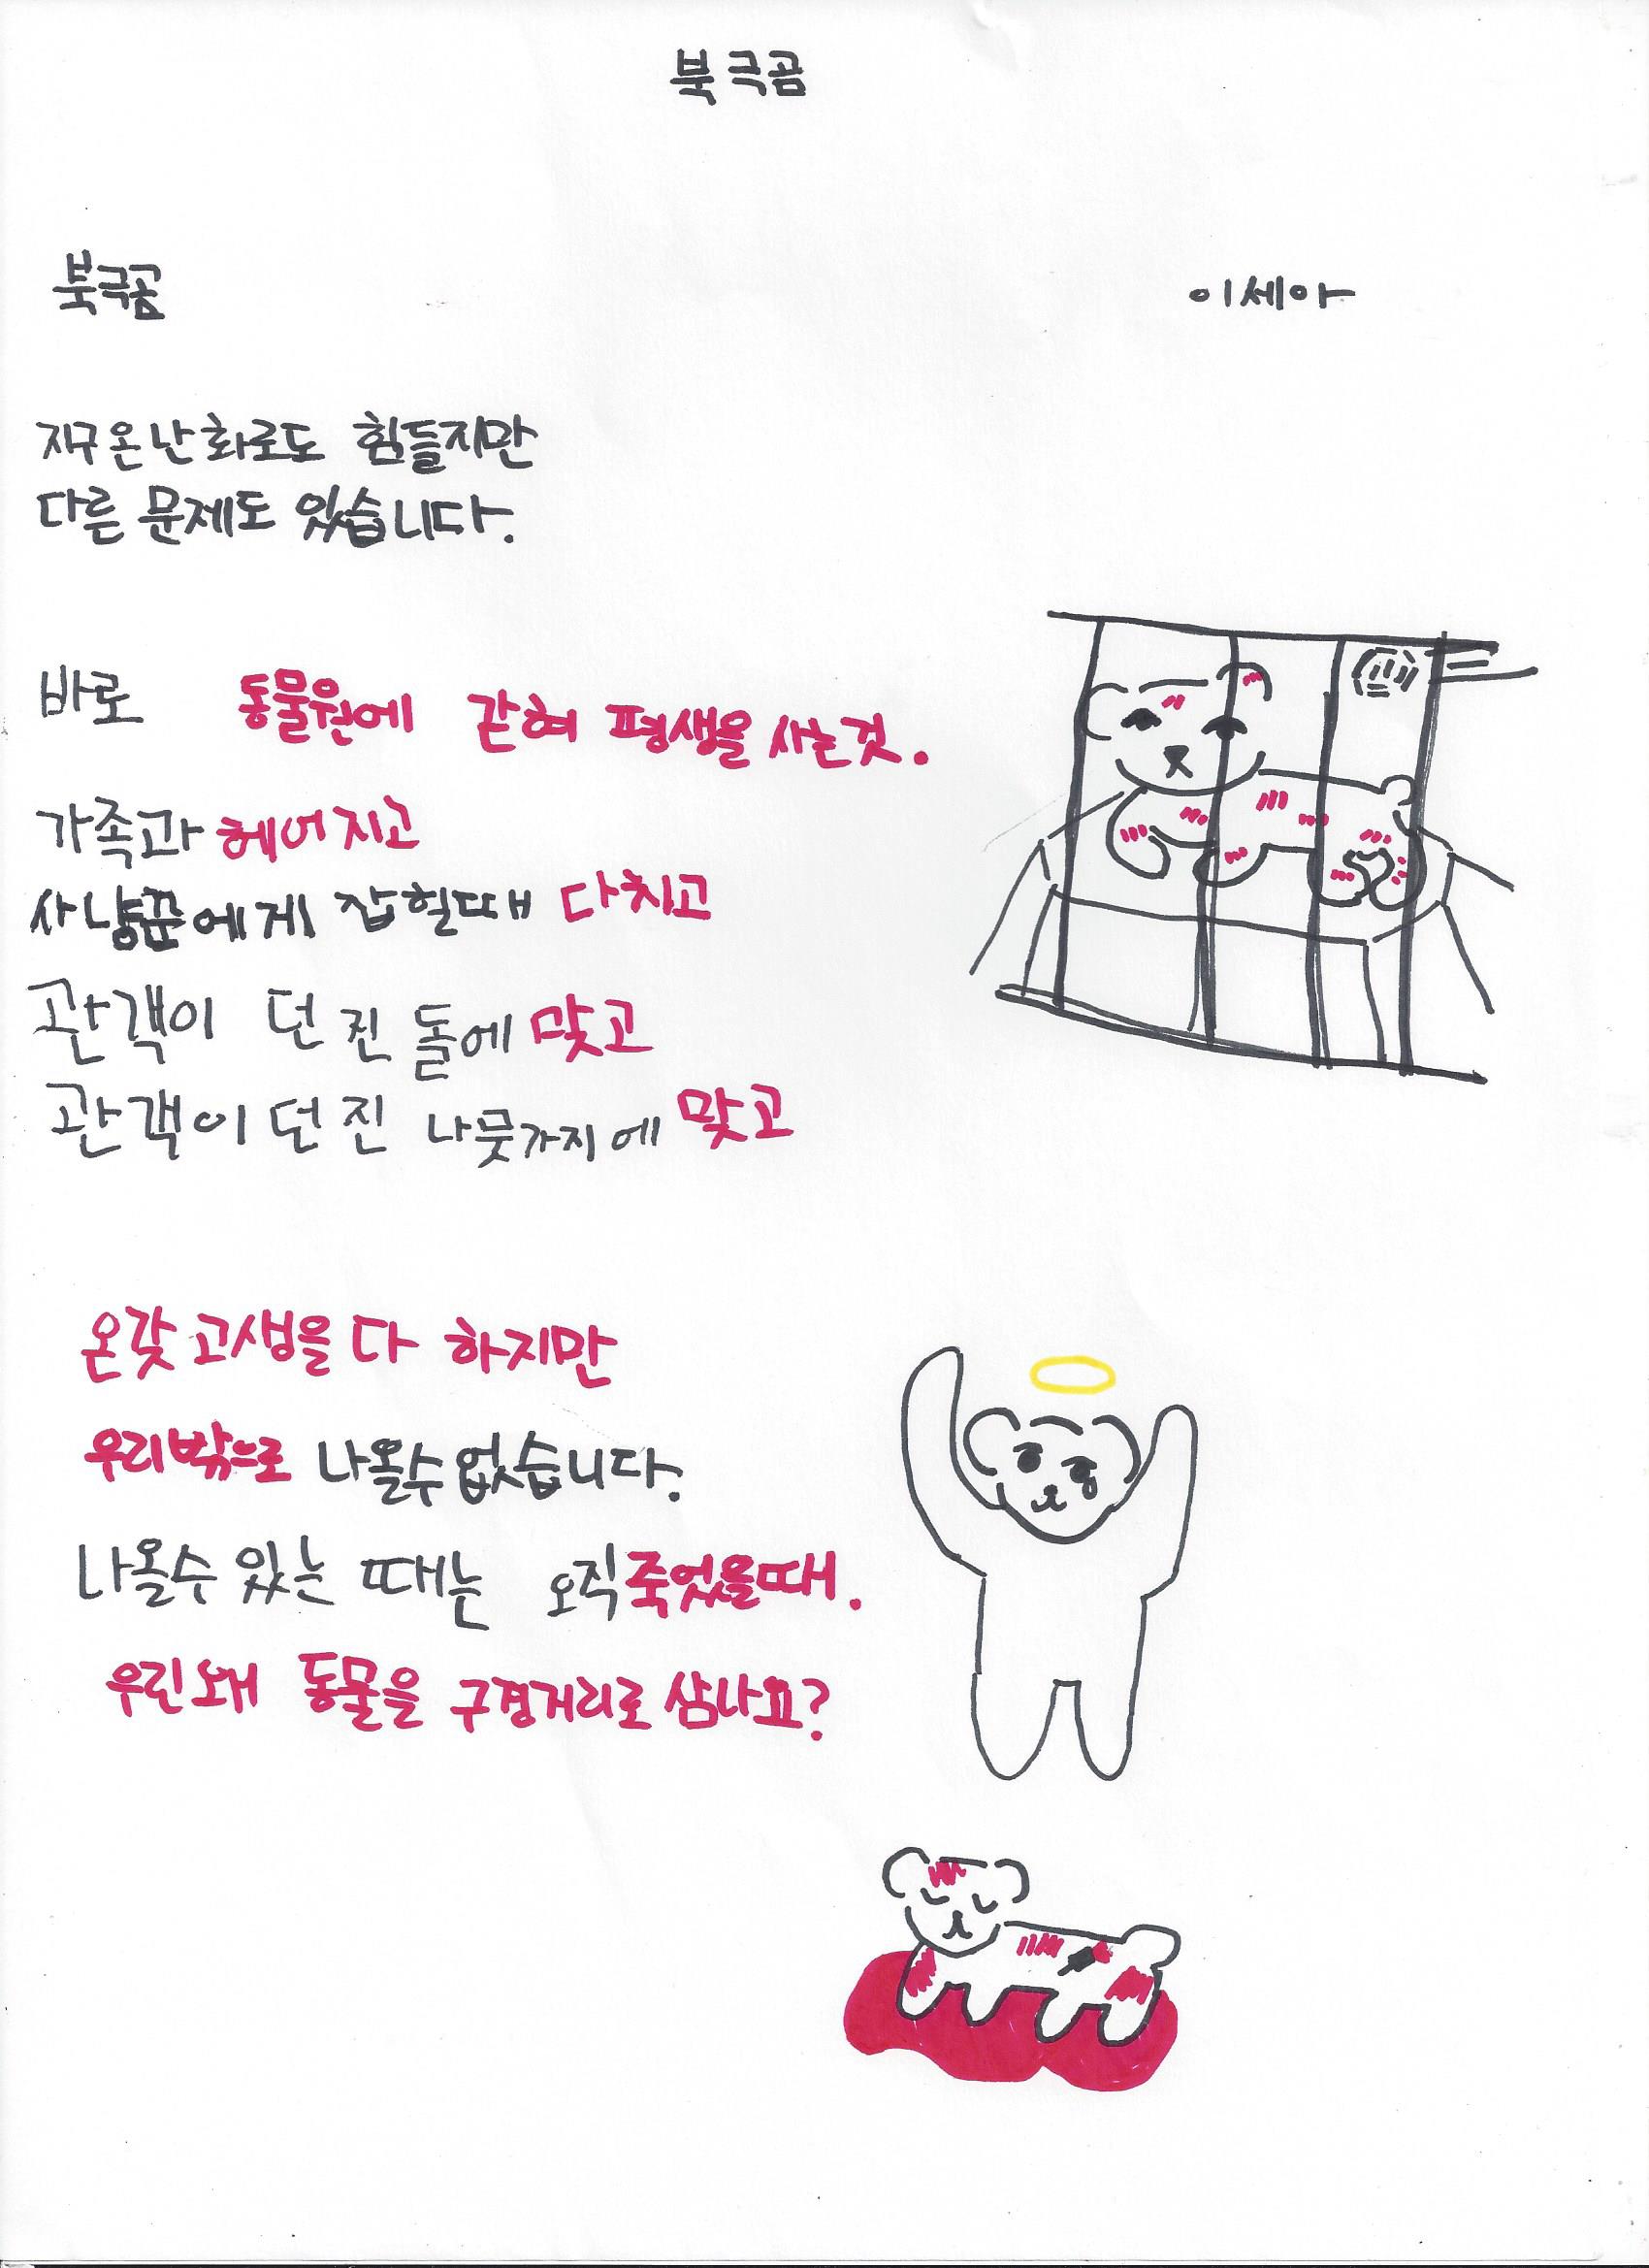 북극곰
북극곰 이세아
지구온난화로도 힘들지만
다른 문제도 있습니다.
바로 동물원에 갇혀 평생을 사는것.
가족과 헤어지고
사냥꾼에게 잡힐때 다치고
관객이 던진 돌에 맞고
관객이 던진 나뭇가지에 맞고
온갖 고생을 다 하지만
우리밖으로 나올수 없습니다.
나올수 있는 때는 오직 죽었을때.
우린 왜 동물을 구경거리로 삼나요?